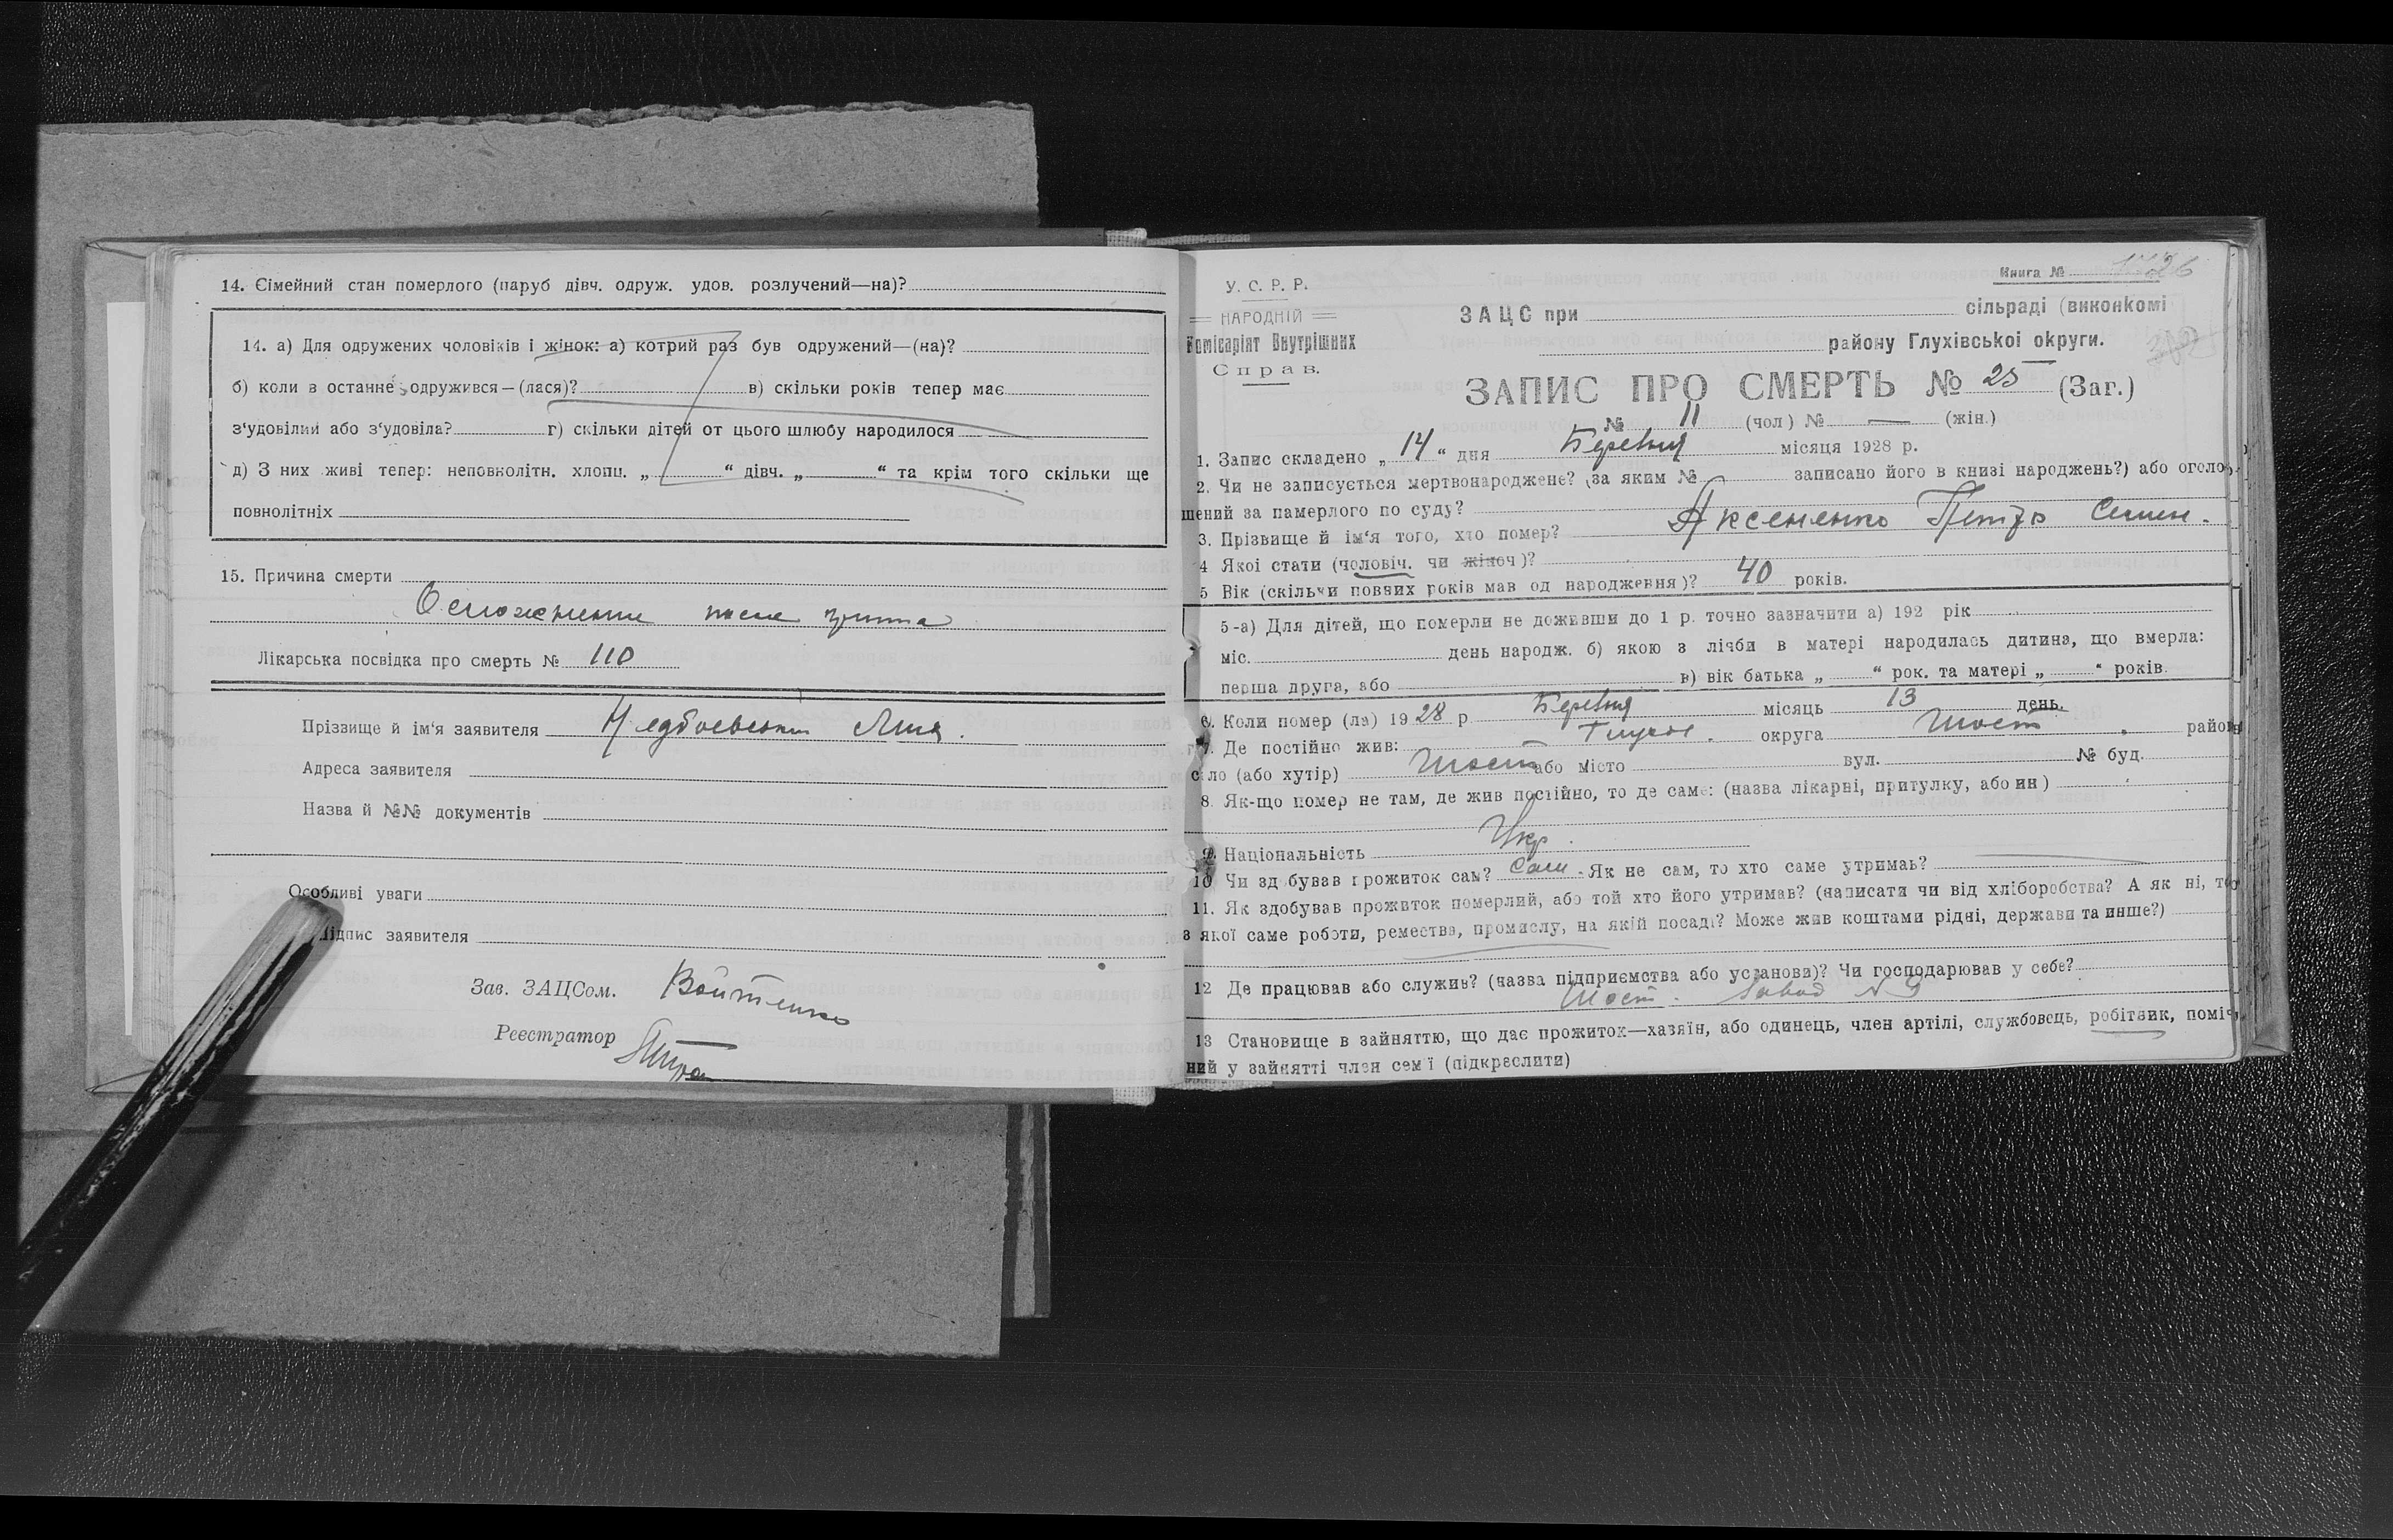 14. Сімейний стан померлого (паруб дівч. одруж. удов. розлучений—на)?
14. а) Для одружених чоловіків і жінок: а) котрий раз був одружений—(на)?
б) коли в останнє одружився—(лася)? в) скільки років тепер має
з‘удовілий або з‘удовіла? г) скільки дітей от цього шлюбу народилося
д) З них живі тепер: неповнолітн. хлопц. „ “ дівч. „ “ та крім того скільки ще
повнолітніх
15. Причина смерти
Осложнение после гриппа
Лікарська посвідка про смерть № 110
Прізвище й ім‘я заявителя
Адреса заявителя
Назва й №№ документів
Особливі уваги
Підпис заявителя
Зав. ЗАЦСом. Войтенко
Реєстратор
У. С. Р. Р.
НАРОДНІЙ
Комісаріят Внутрішних
Справ.
Книга №
ЗАЦС при сільраді (виконкомі
району Глухівської округи.
ЗАПИС ПРО СМЕРТЬ № 25 (Заг.)
№ 11 (чол) № — (жін.)
1. Запис складено „ 14 “ дня Березня місяця 1928 р.
2. Чи не записується мертвонароджене? (за яким № записано його в книзі народжень?) або оголо-
шений за памерлого по суду?
3. Прізвище й ім‘я того, хто помер? Аксененко Петро Семен.
4 Якої стати (чоловіч. чи жіноч)?
5 Вік (скільки повних років мав од народження)? 40 років.
5-а) Для дітей, що померли не доживши до 1 р. точно зазначити а) 192 рік
міс. день народж. б) якою з лічби в матері народилась дитина, що вмерла:
перша друга, або в) вік батька „ “ рок. та матері „ “ років.
6. Коли помер (ла) 1928 р. Березня місяць 13 день.
7. Де постійно жив: Глухов. округа Шост. район
село (або хутір) Шост або місто вул. № буд.
8. Як-що помер не там, де жив постійно, то де саме: (назва лікарні, притулку, або ин)
9. Національність Укр.
10 Чи здобував прожиток сам? Сам. Як не сам, то хто саме утримав?
11. Як здобував прожиток померлий, або той хто його утримав? (написати чи від хліборобства? А як ні, то
з якої саме роботи, ремества, промислу, на якій посаді? Може жив коштами рідні, держави та инше?)
12 Де працював або служив? (назва підприємства або установи)? Чи господарював у себе?
Шост. Завод № 9
13 Становище в зайняттю, що дає прожиток—хазяїн, або одинець, член артілі, службовець, робітник, поміч-
ний у зайнятті член сем'ї (підкреслити)